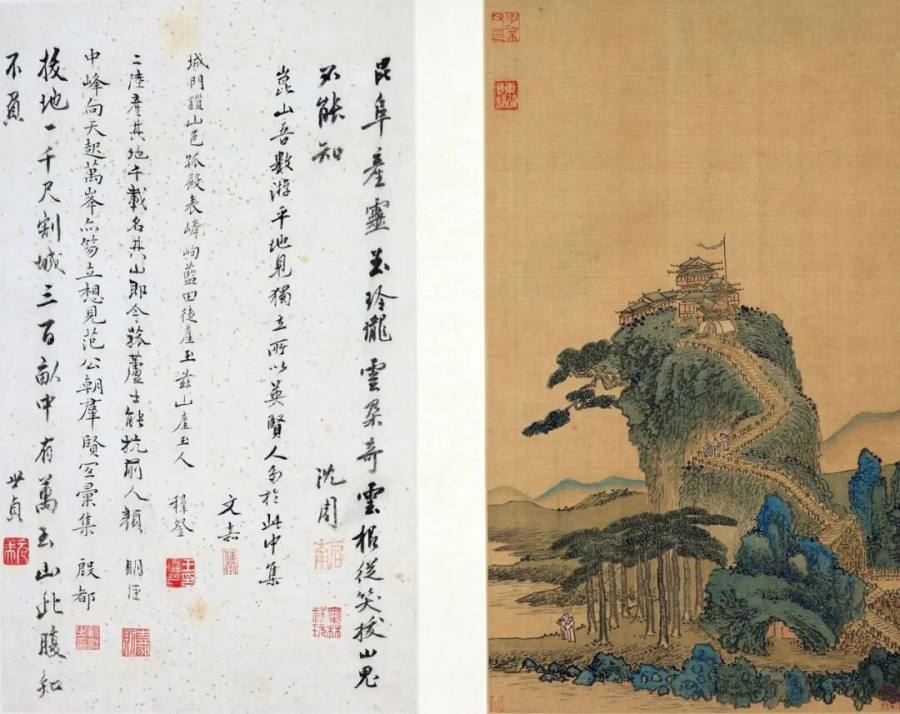 昆阜產靈玉玲瓏雲朵奇雲根從笑拔山鬼
不能知 沈周
崑山吾數游平地見獨立所以英賢人多於此中集
文嘉
城門鎖山邑孤殿表嶙峋藍田徒產玉茲山產玉人
穉登
二陸產其地千載名其山即今菰蘆士能抗前人顏 明臣
中峰向天起萬峯亦笏立想見范公朝羣賢空彙集 殷都
拔地一千尺割城三百畝中有萬玉山此腹知
不負 世貞